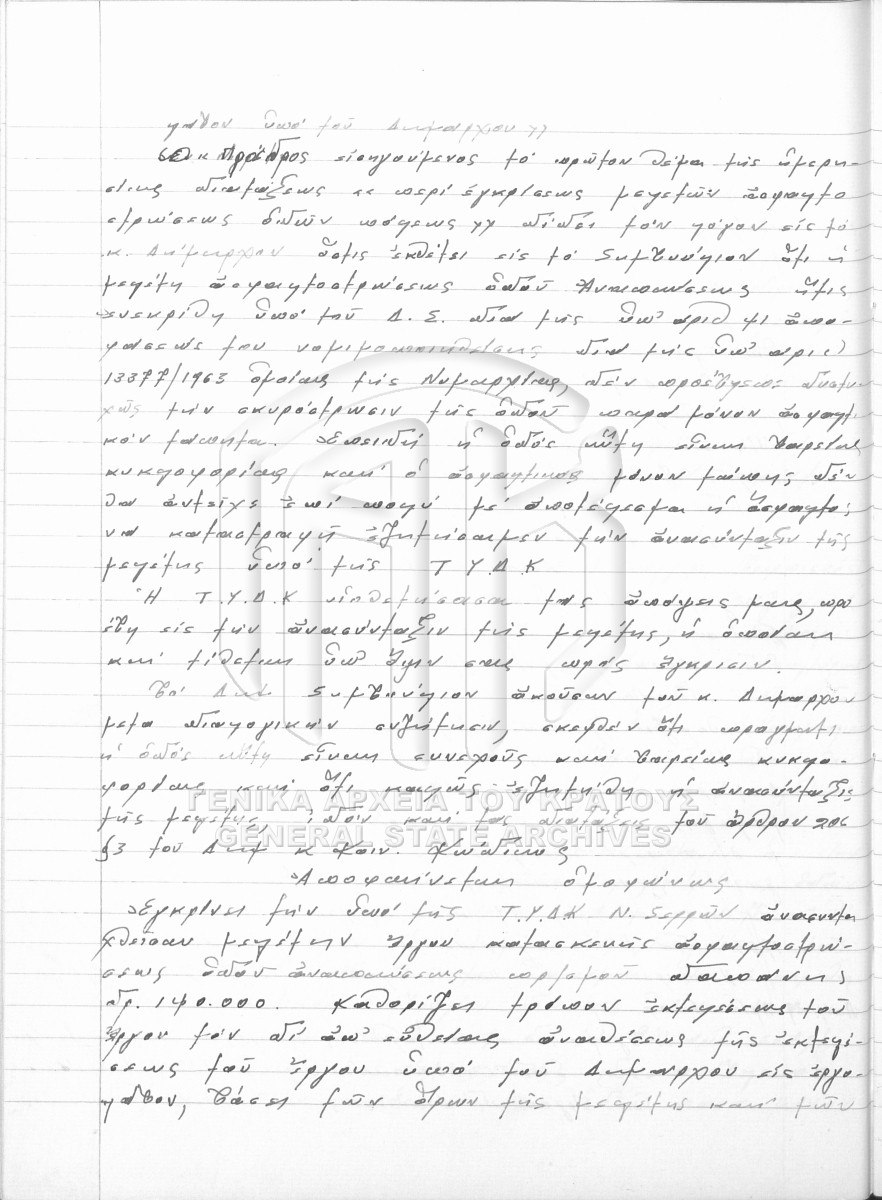 γάβον ὑπό τοῦ Δημάρχου »
Ὁ κ. Πρόεδρος εἰσηγούμενος τό πρῶτον θέμα τῆς ἡμερη-
σίας διατάξεως « περί ἐγκρίσεως μελετῶν ἀσφαλτο
στρώσεως ὁδῶν πόλεως » δίδει τόν λόγον εἰς τό
κ. Δήμαρχον ὅστις ἐκθέτει εἰς τό Συμβούλιον ὅτι ἡ
μελέτη ἀσφαλτοστρώσεως ὁδοῦ Ἀναπαύσεως ἥτις
ἐνεκρίθη ὑπό τοῦ Δ. Σ. διά τῆς ὑπ' ἀριθ 41 ἀπο-
φάσεώς του νομιμοποιηθείσης διά τῆς ὑπ' ἀριθ
13377/1963 ὁμοίας τῆς Νομαρχίας, δέν προέβλεπε δυστυ
χῶς τήν σκυρόστρωσιν τῆς ὁδοῦ παρά μόνον ἀσφαλτι
κόν τάπητα. Ἐπειδή ἡ ὁδός αὕτη εἶναι βαρείας
κυκλοφορίας καί ὁ ἀσφαλτικός μόνον τάπης δέν
θά ἀντεῖχε ἐπί πολύ μέ ἀποτέλεσμα ἡ ἄσφαλτος
νά καταστραφῆ ἐζητήσαμεν τήν ἀνασύνταξιν τῆς
μελέτης ὑπό τῆς Τ.Υ.Δ.Κ
Ἡ Τ.Υ.Δ.Κ υἱοθετήσασα τάς ἀπόψεις μας, προ
έβη εἰς τήν ἀνασύνταξιν τῆς μελέτης, ἡ ὁποία
καί τίθεται ὑπ' ὄψιν σας πρός ἔγκρισιν.
Τό Δημ. Συμβούλιον ἀκοῦσαν τοῦ κ. Δημάρχου
μετά διαλογικήν συζήτησιν, σκεφθέν ὅτι πράγματι
ἡ ὁδός αὕτη εἶναι συνεχοῦς καί βαρείας κυκλο-
φορίας καί ὅτι καλῶς ἐζητήθη ἡ ἀνασύνταξις
τῆς μελέτης, ἰδόν καί τάς διατάξεις τοῦ ἄρθρου 206
§3 τοῦ Δημ κ Κοιν. Κώδικος
Ἀποφαίνεται ὁμοφώνως
Ἐγκρίνει τήν ὑπό τῆς Τ.Υ.Δ.Κ Ν. Σερρῶν ἀνασυντα
χθεῖσαν μελέτην ἔργου κατασκευῆς ἀσφαλτοστρώ-
σεως ὁδοῦ ἀναπαύσεως ὁρισμοῦ δαπάνης
δρ. 140.000. Καθορίζει τρόπον ἐκτελέσεως τοῦ
ἔργου τόν δι' ἀπ' εὐθείας ἀναθέσεως τῆς ἐκτελέ-
σεως τοῦ ἔργου ὑπό τοῦ Δημάρχου εἰς ἐργο-
λάβον, βάσει τῶν ὅρων τῆς μελέτης καί τῶν
ΓΕΝΙΚΑ ΑΡΧΕΙΑ ΤΟΥ ΚΡΑΤΟΥΣ
GENERAL STATE ARCHIVES